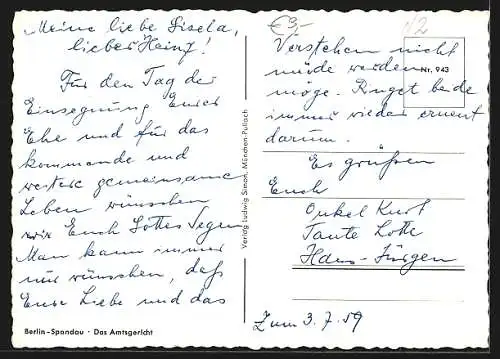 Meine liebe Gisela,
lieber Heinz!
Für den Tag der
Einsegnung Eurer
Ehe und für das
kommende und
weitere gemeinsame
Leben wünschen
wir Euch Gottes Segen
Man kann immer
nur wünschen, daß
Eure Liebe und das
Berlin-Spandau · Das Amtsgericht
Verlag Ludwig Simon, München-Pullach
€3,-
Nr. 943
Verstehen nicht
müde werden
möge. Ringet beide
immer wieder erneut
darum.
Es grüßen
Euch
Onkel Kurt
Tante Lotte
Hans-Jürgen
Zum 3.7.59